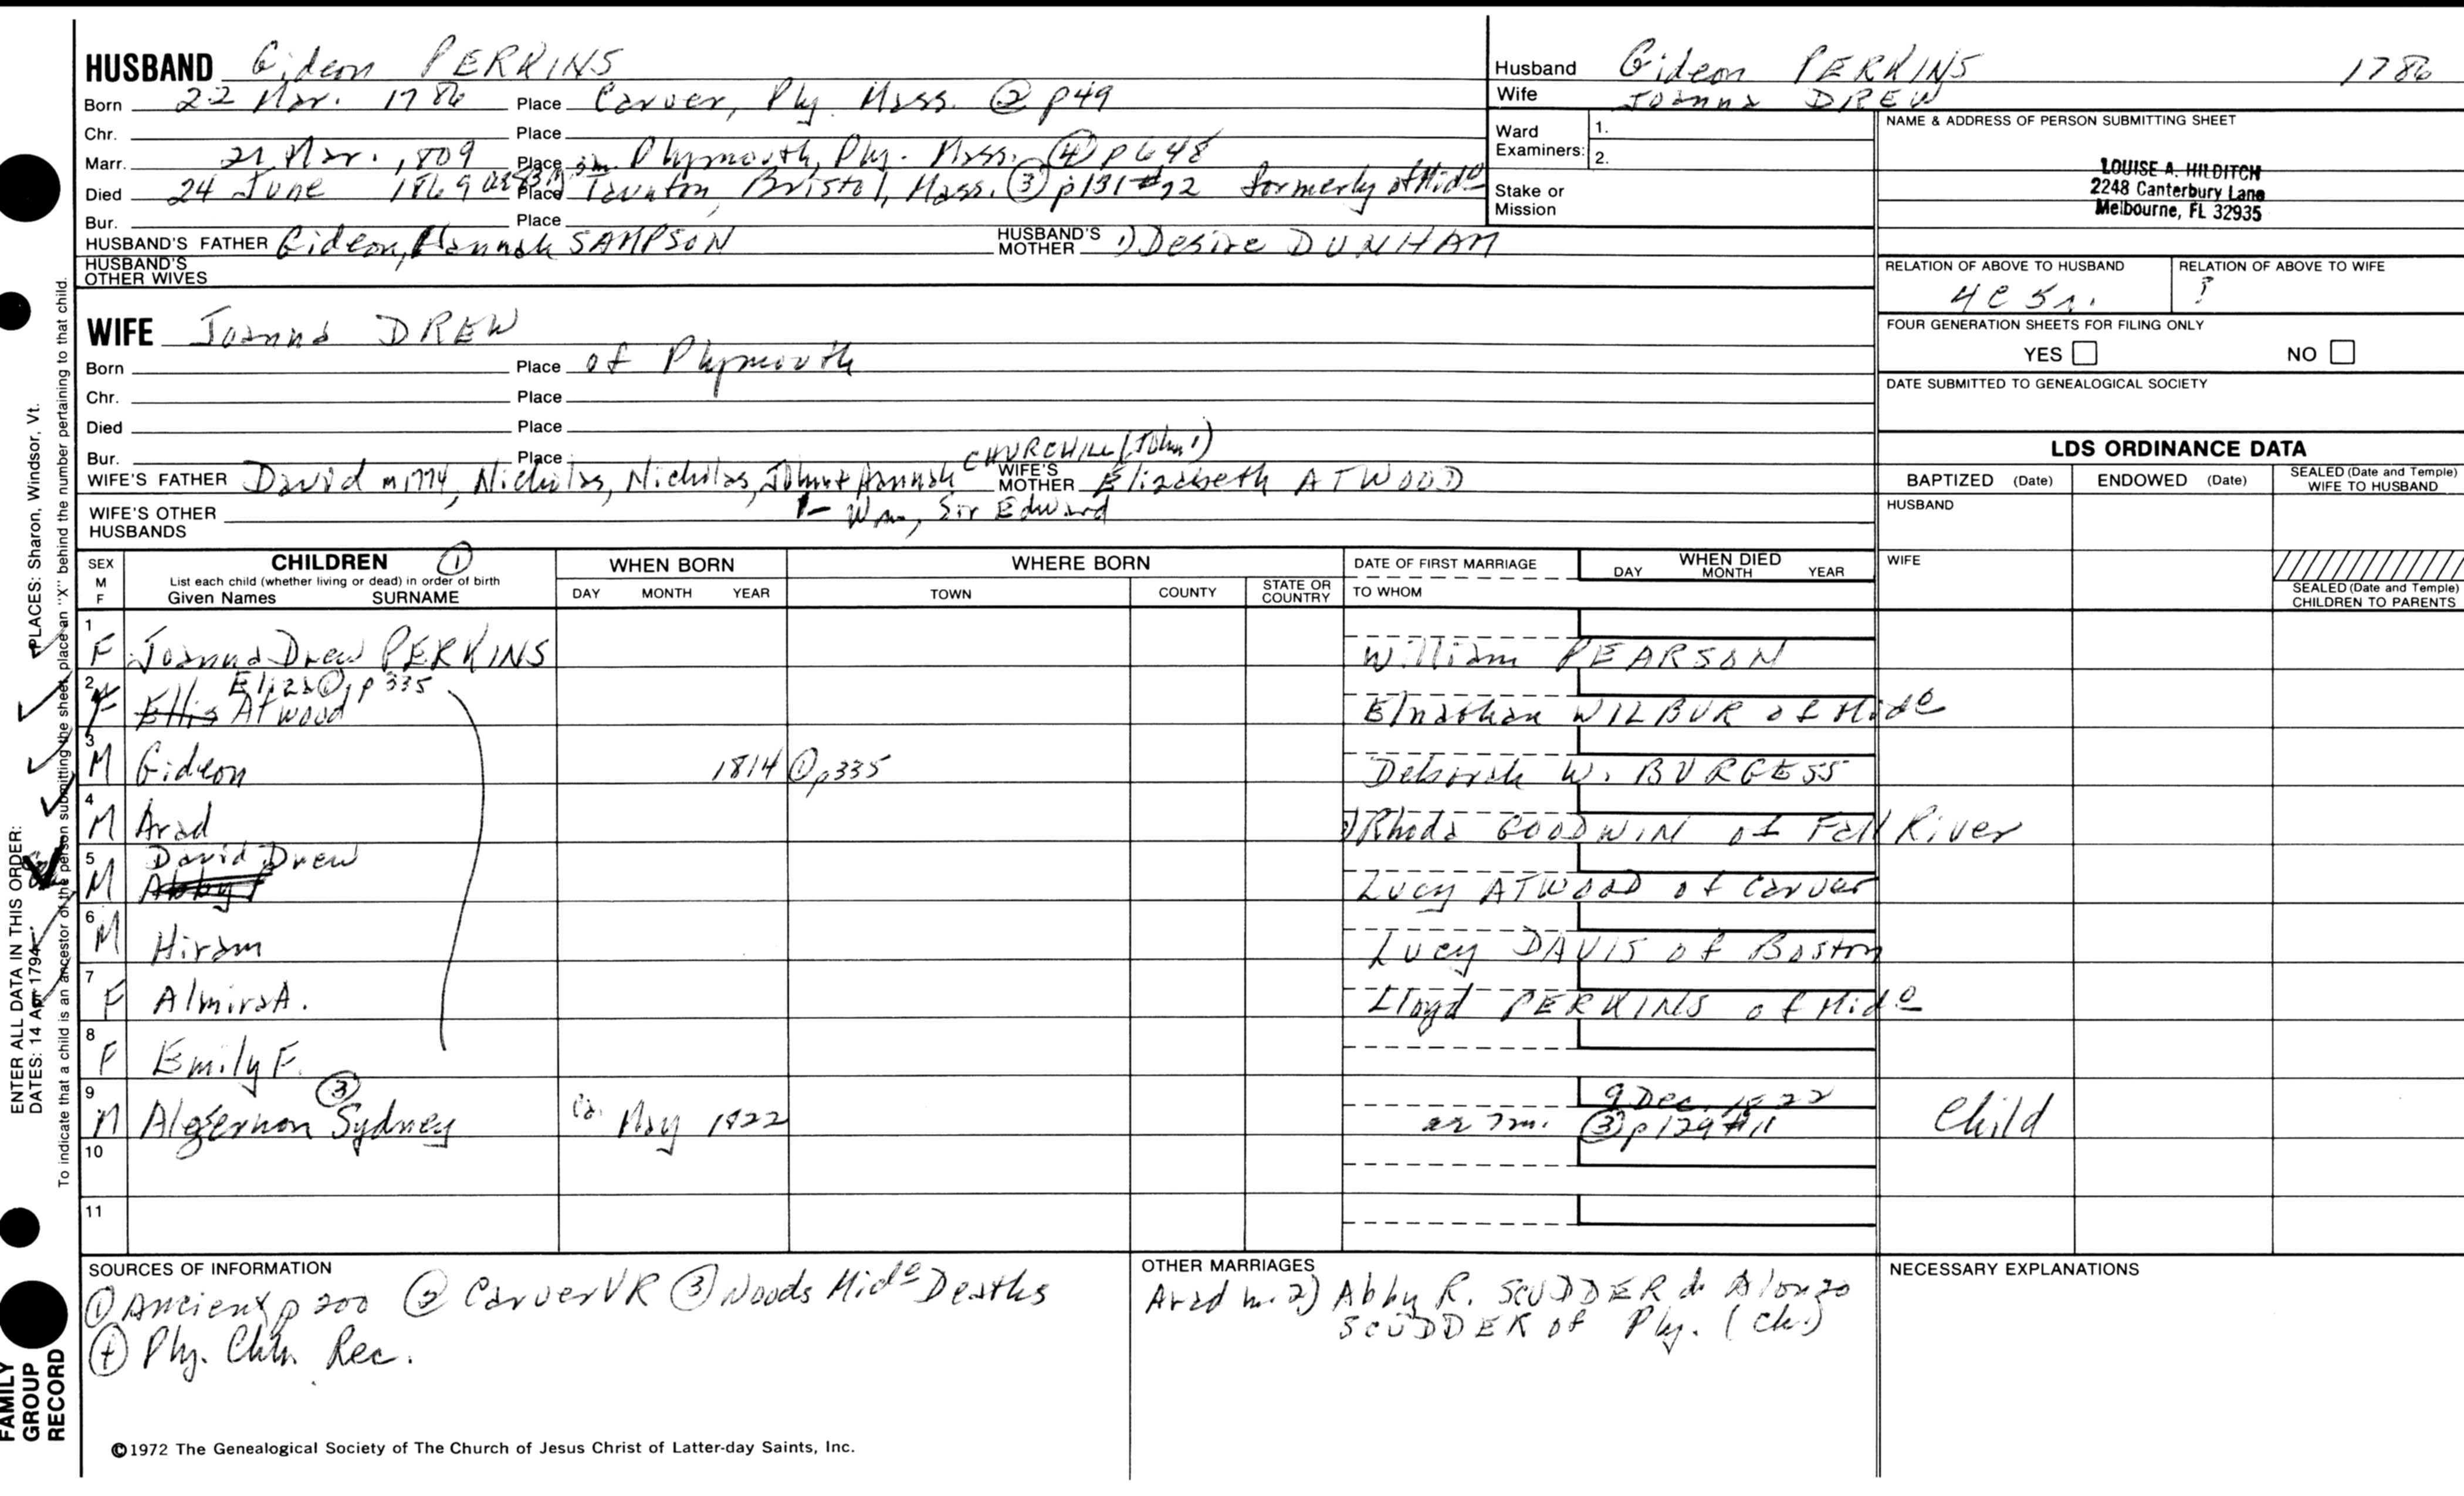 HUSBAND Gideon PERKINS
Born 22 Mar. 1786 Place Carver, Ply. Mass. ② p49
Chr. Place
Marr. 21 Mar. 1809 Place Plymouth, Ply. Mass. ④ p648
Died 24 June 1869 Place Taunton, Bristol, Mass. ③ p131 #92 formerly of Mido
Bur. Place
HUSBAND'S FATHER Gideon, Hannah SAMPSON HUSBAND'S MOTHER 1) Desire DUNHAM
HUSBAND'S OTHER WIVES
Husband Gideon PERKINS 1786
Wife Joanna DREW
Ward Examiners: 1.
2.
Stake or Mission
NAME & ADDRESS OF PERSON SUBMITTING SHEET
LOUISE A. HILDITCH
2248 Canterbury Lane
Melbourne, FL 32935
RELATION OF ABOVE TO HUSBAND RELATION OF ABOVE TO WIFE
4C 5r. ?
FOUR GENERATION SHEETS FOR FILING ONLY
YES NO
DATE SUBMITTED TO GENEALOGICAL SOCIETY
WIFE Joanna DREW
Born Place of Plymouth
Chr. Place
Died Place
Bur. Place
CHURCHILL (John1)
WIFE'S FATHER David m 1774, Nicholas, Nicholas, John + Hannah WIFE'S MOTHER Elizabeth ATWOOD
Wm, Sir Edward
WIFE'S OTHER HUSBANDS
LDS ORDINANCE DATA
BAPTIZED (Date) ENDOWED (Date) SEALED (Date and Temple) WIFE TO HUSBAND
HUSBAND
WIFE
SEALED (Date and Temple) CHILDREN TO PARENTS
SEX M F CHILDREN ① List each child (whether living or dead) in order of birth Given Names SURNAME
WHEN BORN DAY MONTH YEAR
WHERE BORN TOWN COUNTY STATE OR COUNTRY
DATE OF FIRST MARRIAGE TO WHOM
WHEN DIED DAY MONTH YEAR
1 F Joanna Drew PERKINS William PEARSON
2 F Eliza ① p335 Ellis Atwood Elnathan WILBUR of Mido
3 M Gideon 1814 ① p335 Deborah W. BURGESS
4 M Arad 1) Rhoda GOODWIN of Fall River
5 M David Drew Abby Lucy ATWOOD of Carver
6 M Hiram Lucy DAVIS of Boston
7 F Almira A. Lloyd PERKINS of Mido
8 F Emily F.
9 M Algernon Sydney ③ ca. May 1822 9 Dec. 1822
ae 7m. ③ p129 #11 Child
10
11
SOURCES OF INFORMATION
① Ancient p 200 ② Carver VR ③ Woods Mido Deaths
④ Ply. Chh. Rec.
OTHER MARRIAGES
Arad m. 2) Abby R. SCUDDER d. Alonzo
SCUDDER of Ply. (ch.)
NECESSARY EXPLANATIONS
©1972 The Genealogical Society of The Church of Jesus Christ of Latter-day Saints, Inc.
ENTER ALL DATA IN THIS ORDER:
PLACES: Sharon, Windsor, Vt.
DATES: 14 Apr 1794
To indicate that a child is an ancestor of the person submitting the sheet, place an "X" behind the number pertaining to that child.
FAMILY
GROUP
RECORD